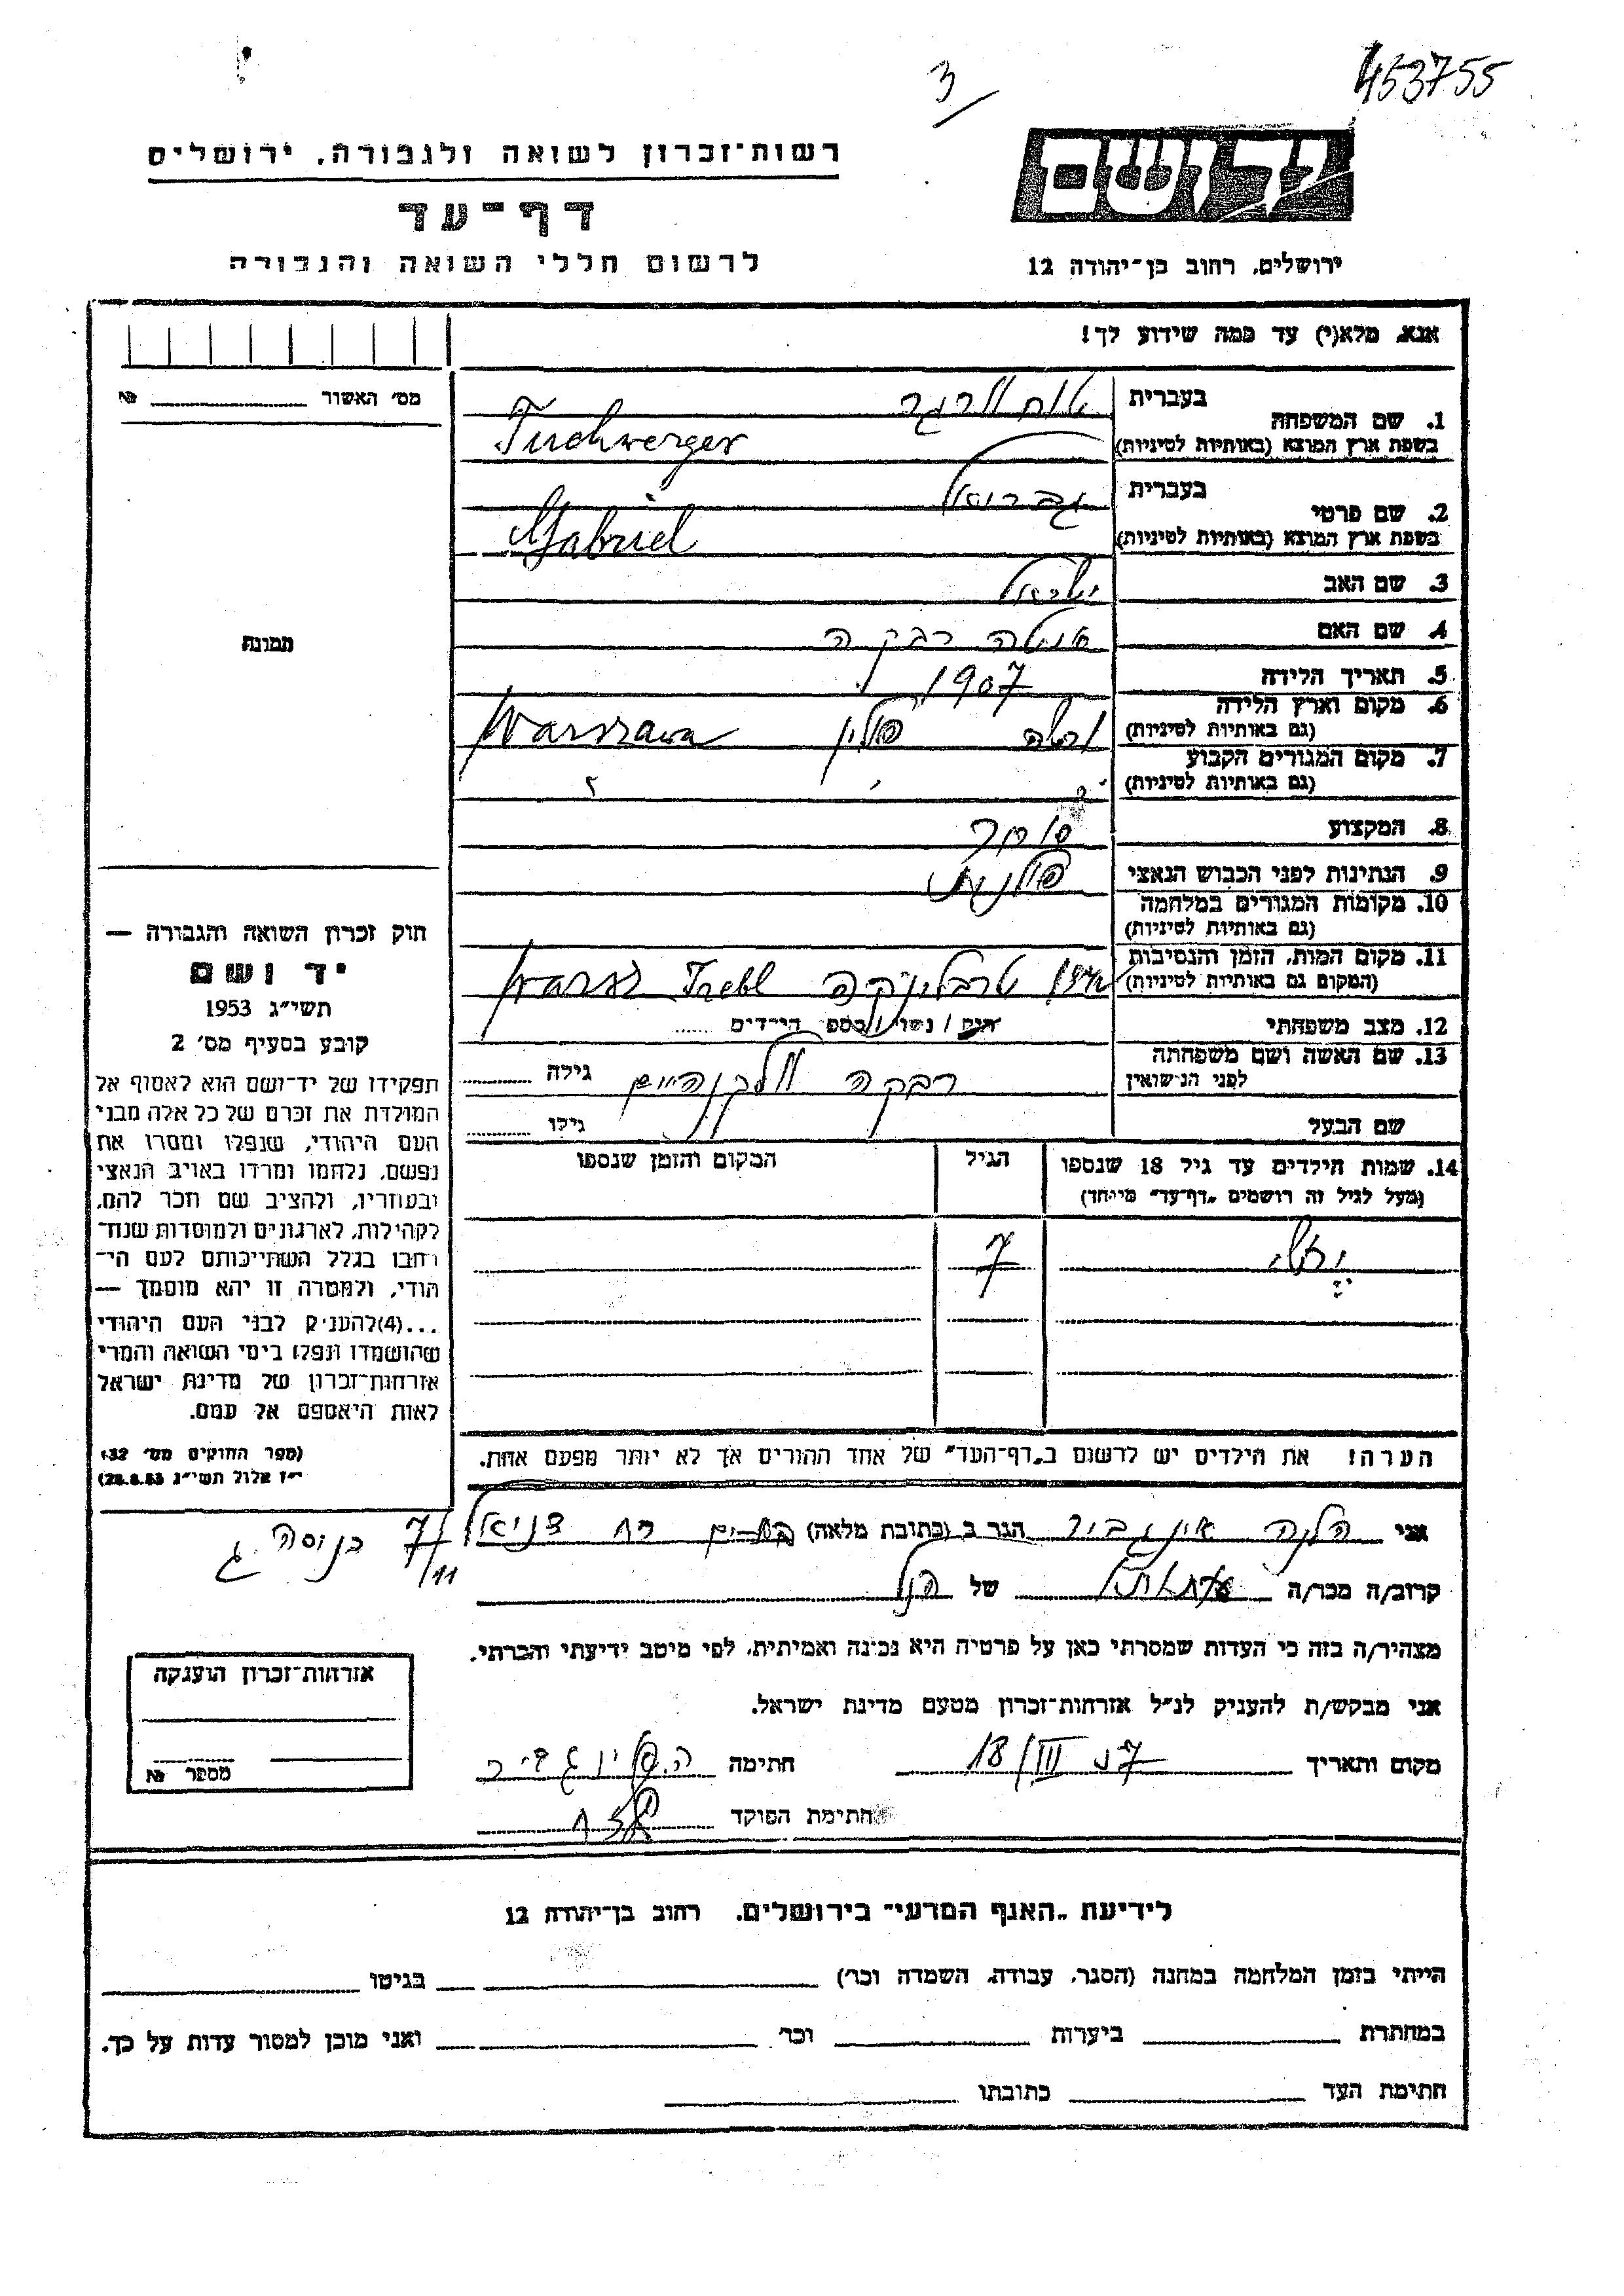 453755
3
רשות־זכרון לשואה ולגבורה, ירושלים
דף־עד
לרשום חללי השואה והגבורה
יד ושם
ירושלים, רחוב בן־יהודה 12
אנא, מלא(י) עד כמה שידוע לך!
מס׳ האשור № 
1. שם המשפחה
בעברית
טוכוורגר
בשפת ארץ המוצא (באותיות לטיניות)
Tuchwerger
2. שם פרטי
בעברית
גבריאל
בשפת ארץ המוצא (באותיות לטיניות)
Gabriel
3. שם האב ישראל
4. שם האם רבקה
5. תאריך הלידה 1907
6. מקום וארץ הלידה
(גם באותיות לטיניות)
ורשה פולין Warszawa
7. מקום המגורים הקבוע
(גם באותיות לטיניות)
8. המקצוע סוחר
9. הנתינות לפני הכבוש הנאצי פולנית
10. מקומות המגורים במלחמה
(גם באותיות לטיניות)
11. מקום המות, הזמן והנסיבות
(המקום גם באותיות לטיניות)
טרבלינקה Trebl Warsz
12. מצב משפחתי רוק / נשוי / מספר הילדים
13. שם האשה ושם משפחתה
לפני הנישואין
רבקה גילה
שם הבעל גילו
14. שמות הילדים עד גיל 18 שנספו
(מעל לגיל זה רושמים „דף־עד״ מיוחד)
הגיל
המקום והזמן שנספו
7
הערה! את הילדים יש לרשום ב„דף־העד״ של אחד ההורים אך לא יותר מפעם אחת.
תמונה
חוק זכרון השואה והגבורה —
יד ושם
תשי״ג 1953
קובע בסעיף מס׳ 2
תפקידו של יד־ושם הוא לאסוף אל
המולדת את זכרם של כל אלה מבני
העם היהודי, שנפלו ומסרו את
נפשם, נלחמו ומרדו באויב הנאצי
ובעוזריו, ולהציב שם וזכר להם,
לקהילות, לארגונים ולמוסדות שנח־
רבו בגלל השתייכותם לעם הי־
הודי, ולמטרה זו יהא מוסמך —
...(4)להעניק לבני העם היהודי
שהושמדו ונפלו בימי השואה והמרי
אזרחות־זכרון של מדינת ישראל
לאות היאספם אל עמם.
(ספר החוקים מס׳ 132
י״ז אלול תשי״ג 28.8.53)
אני הלנה הגר ב (כתובת מלאה) בת־ים רח דניאל 7/11 כניסה ג
קרוב/ה מכר/ה של הנ״ל
מצהיר/ה בזה כי העדות שמסרתי כאן על פרטיה היא נכונה ואמיתית, לפי מיטב ידיעתי והכרתי.
אני מבקש/ת להעניק לנ״ל אזרחות־זכרון מטעם מדינת ישראל.
מקום ותאריך 18/III 57 חתימה
חתימת הפוקד
אזרחות־זכרון הוענקה
מספר №
לידיעת „האגף המדעי״ בירושלים, רחוב בן־יהודה 12
הייתי בזמן המלחמה במחנה (הסגר, עבודה, השמדה וכו׳) בגיטו
במחתרת ביערות וכו׳ ואני מוכן למסור עדות על כך.
חתימת העד כתובתו